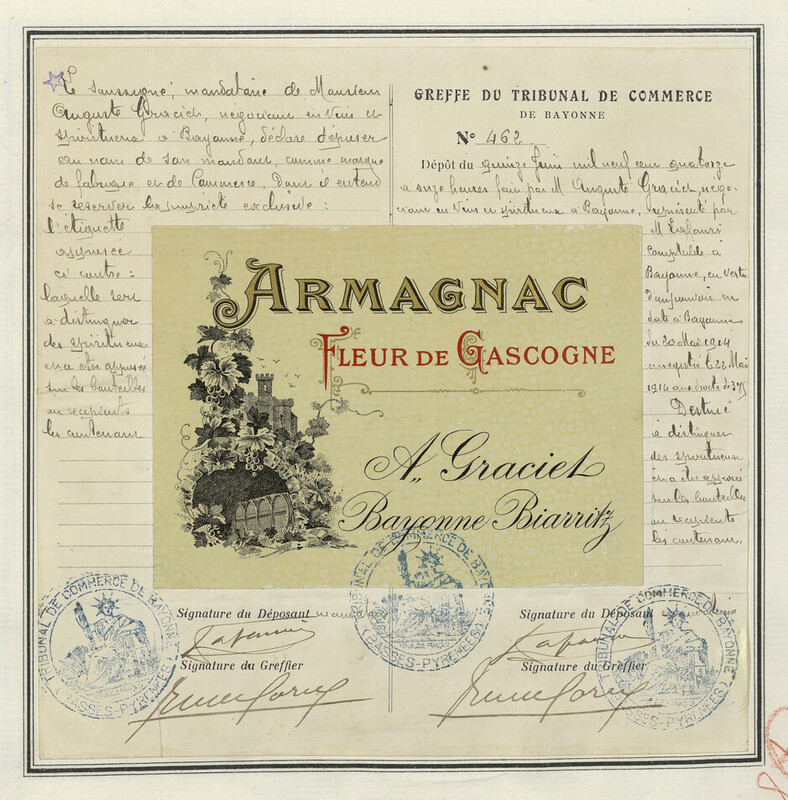 Le soussigné, mandataire de Monsieur
Auguste Graciet, négociant en vins et
spiritueux à Bayonne, déclare déposer
au nom de son mandant, comme marque
de fabrique et de Commerce, dont il entend
se réserver la propriété exclusive :
l'étiquette
apposée
ci contre :
laquelle sert
à distinguer
des spiritueux
en a être apposée
sur les bouteilles
ou récipients
les contenant
GREFFE DU TRIBUNAL DE COMMERCE
DE BAYONNE
N° 462
Dépôt du quinze Juin mil neuf cent quatorze
à onze heures fait par M Auguste Graciet, négo-
ciant en vins et spiritueux à Bayonne, représenté par
M Lafouri
Comptable à
Bayonne, en vertu
d'un pouvoir en
date à Bayonne
du 20 Mai 1914
enregistré le 22 Mai
1914 aux droits de 3.75
Destiné
à distinguer
des spiritueux
en a être apposée
sur les bouteilles
ou récipients
les contenant.
ARMAGNAC
FLEUR DE GASCOGNE
A. Graciet
Bayonne Biarritz
Signature du Déposant
Signature du Greffier
Signature du Déposant
Signature du Greffier
TRIBUNAL DE COMMERCE DE BAYONNE
(BASSES-PYRÉNÉES)
TRIBUNAL DE COMMERCE DE BAYONNE
(BASSES-PYRÉNÉES)
TRIBUNAL DE COMMERCE DE BAYONNE
(BASSES-PYRÉNÉES)